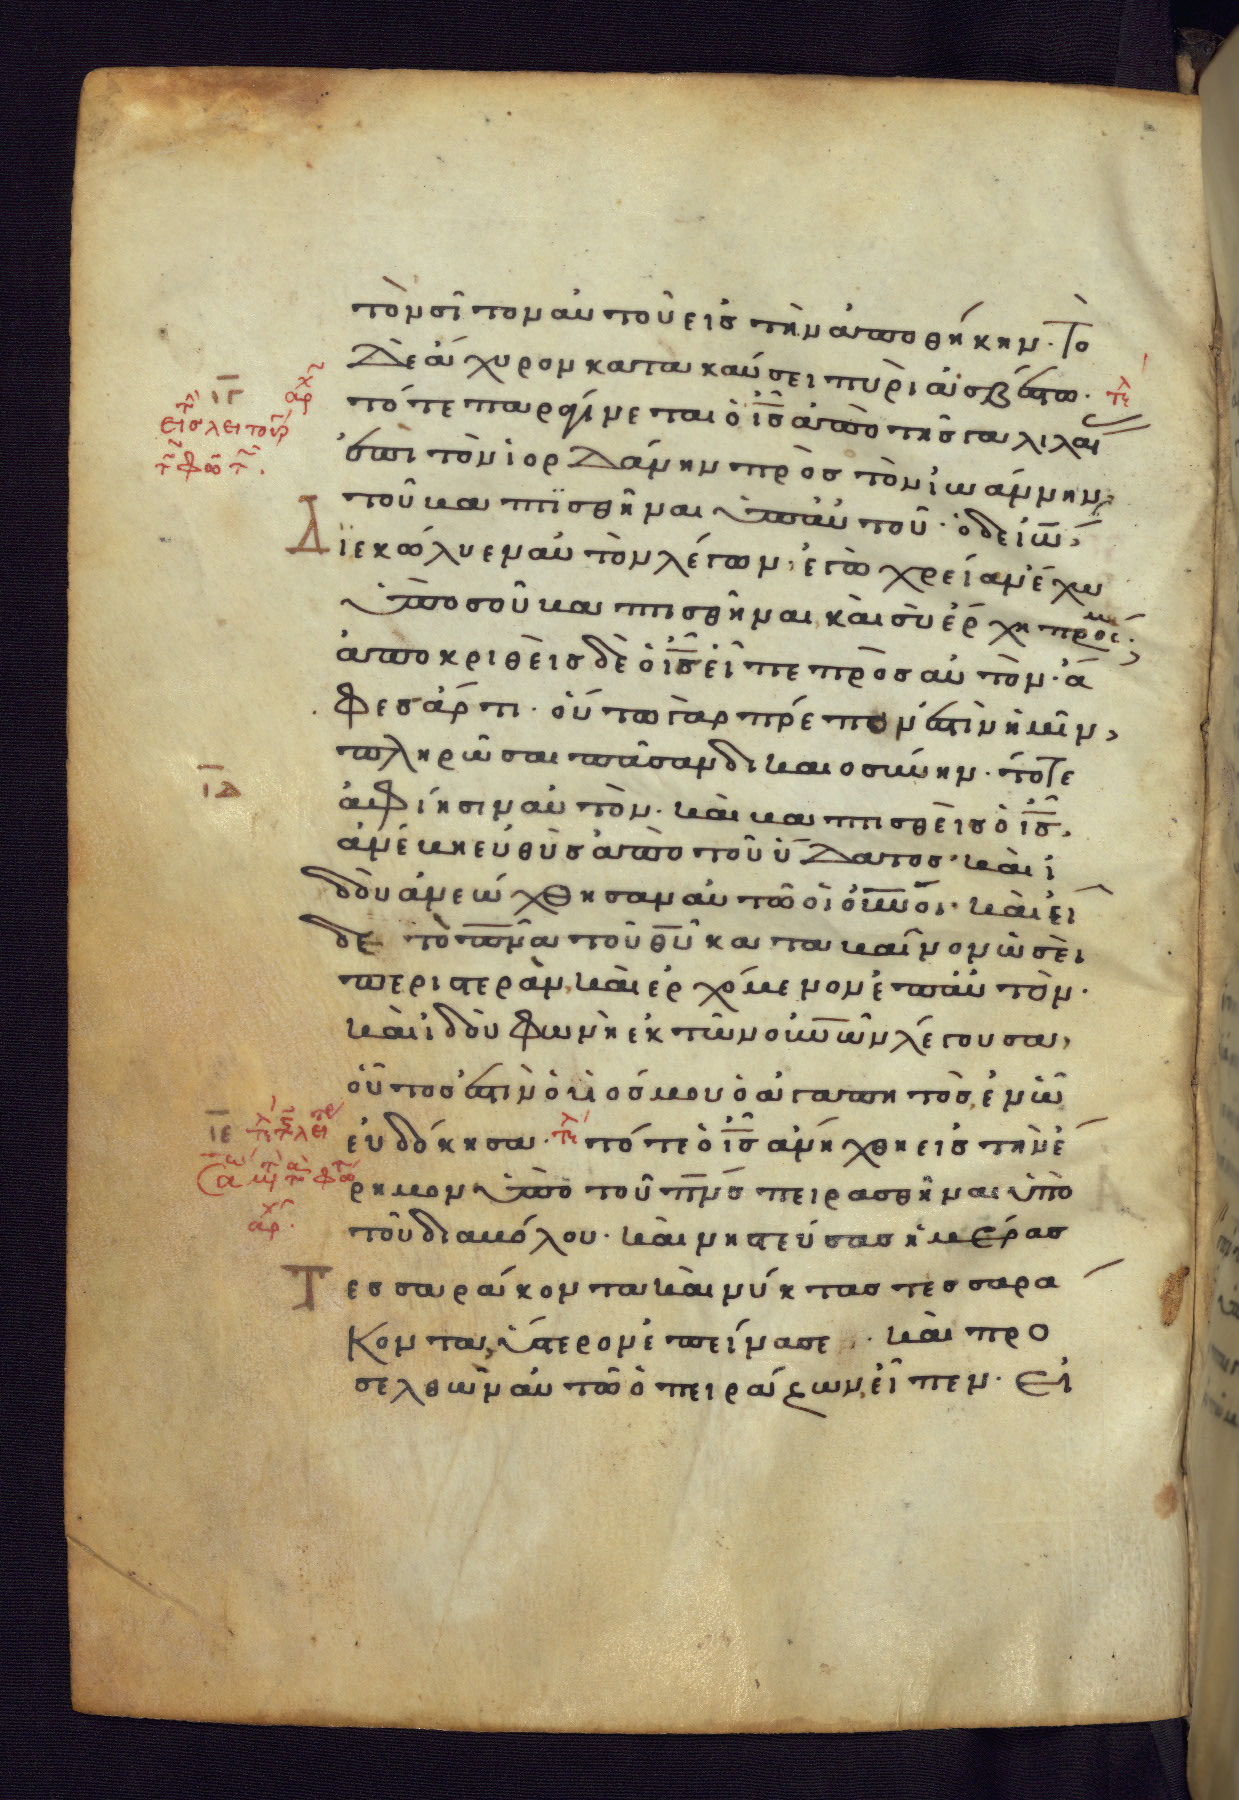 τὸν σῖτον αὐτοῦ εἰς τὴν ἀποθήκην· Τὸ
δὲ ἄχυρον κατακαύσει πυρὶ ἀσβέστω·
ιγ
τότε παραγίνεται ὁ ις ἀπὸ τῆς γαλιλαί
ἐπὶ τὸν ἰορδάνην πρὸς τὸν ἰωάννην,
τοῦ βαπτϊσθῆναι ὑπ αὐτοῦ· ὁ δὲ ἰω,
Δϊεκώλυεν αὐτὸν λέγων, ἐγὼ χρείαν ἔχω
ὑπὸ σοῦ βαπτισθῆναι, καὶ σὺ ἔρχη πρός με·
ἀποκριθεὶς δὲ ὁ ις εἶπε πρὸς αὐτὸν· ἄ
φες ἄρτι· οὕτω γὰρ πρέπον ἐστὶν ἡμῖν,
πληρῶσαι πᾶσαν δικαιοσύνην· τότε
ιδ
ἀφίησιν αὐτὸν· καὶ βαπτισθεὶς ὁ ις,
ἀνέβη εὐθὺς ἀπὸ τοῦ ὕδατος· καὶ ἰ
δοὺ ἀνεώχθησαν αὐτῶ οἱ οὐνοί· καὶ εἶ
δε τὸ πνα τοῦ θυ καταβαῖνον ὡσεὶ
περιστερὰν, καὶ ἐρχόμενον ἐπ αὐτὸν·
καὶ ἰδοὺ φωνὴ ἐκ τῶν οὐνῶν λέγουσα,
οὗτος ἐστὶν ὁ υἱός μου ὁ ἀγαπητὸς, ἐν ὧ
ιε
εὐδόκησα· τότε ὁ ις ἀνήχθη εἰς τὴν ἔ
ρημον ὑπὸ τοῦ πνς πειρασθῆναι ὑπὸ
τοῦ διαβόλου· καὶ νηστεύσας ἡμέρας
Τεσσαράκοντα καὶ νύκτας τεσσαρά
κοντα, ὕστερον ἐπείνασε· καὶ προ
σελθὼν αὐτῶ ὁ πειράζων, εἶπεν· Εἰ